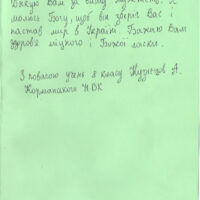 Дякую Вам за вашу мужність. Я
молюсь Богу, щоб він зберіг Вас і
настав мир в Україні. Бажаю Вам
здоров'я міцного і Божої ласки.
З повагою учень 8 класу Кузнєцов А.
НВК